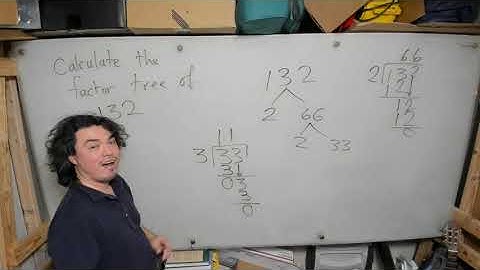 Calculate the
factor tree of
132
132
2 66
2 33
11
3 33
3↓
03
3
0
66
2 132
12↓
12
12
0